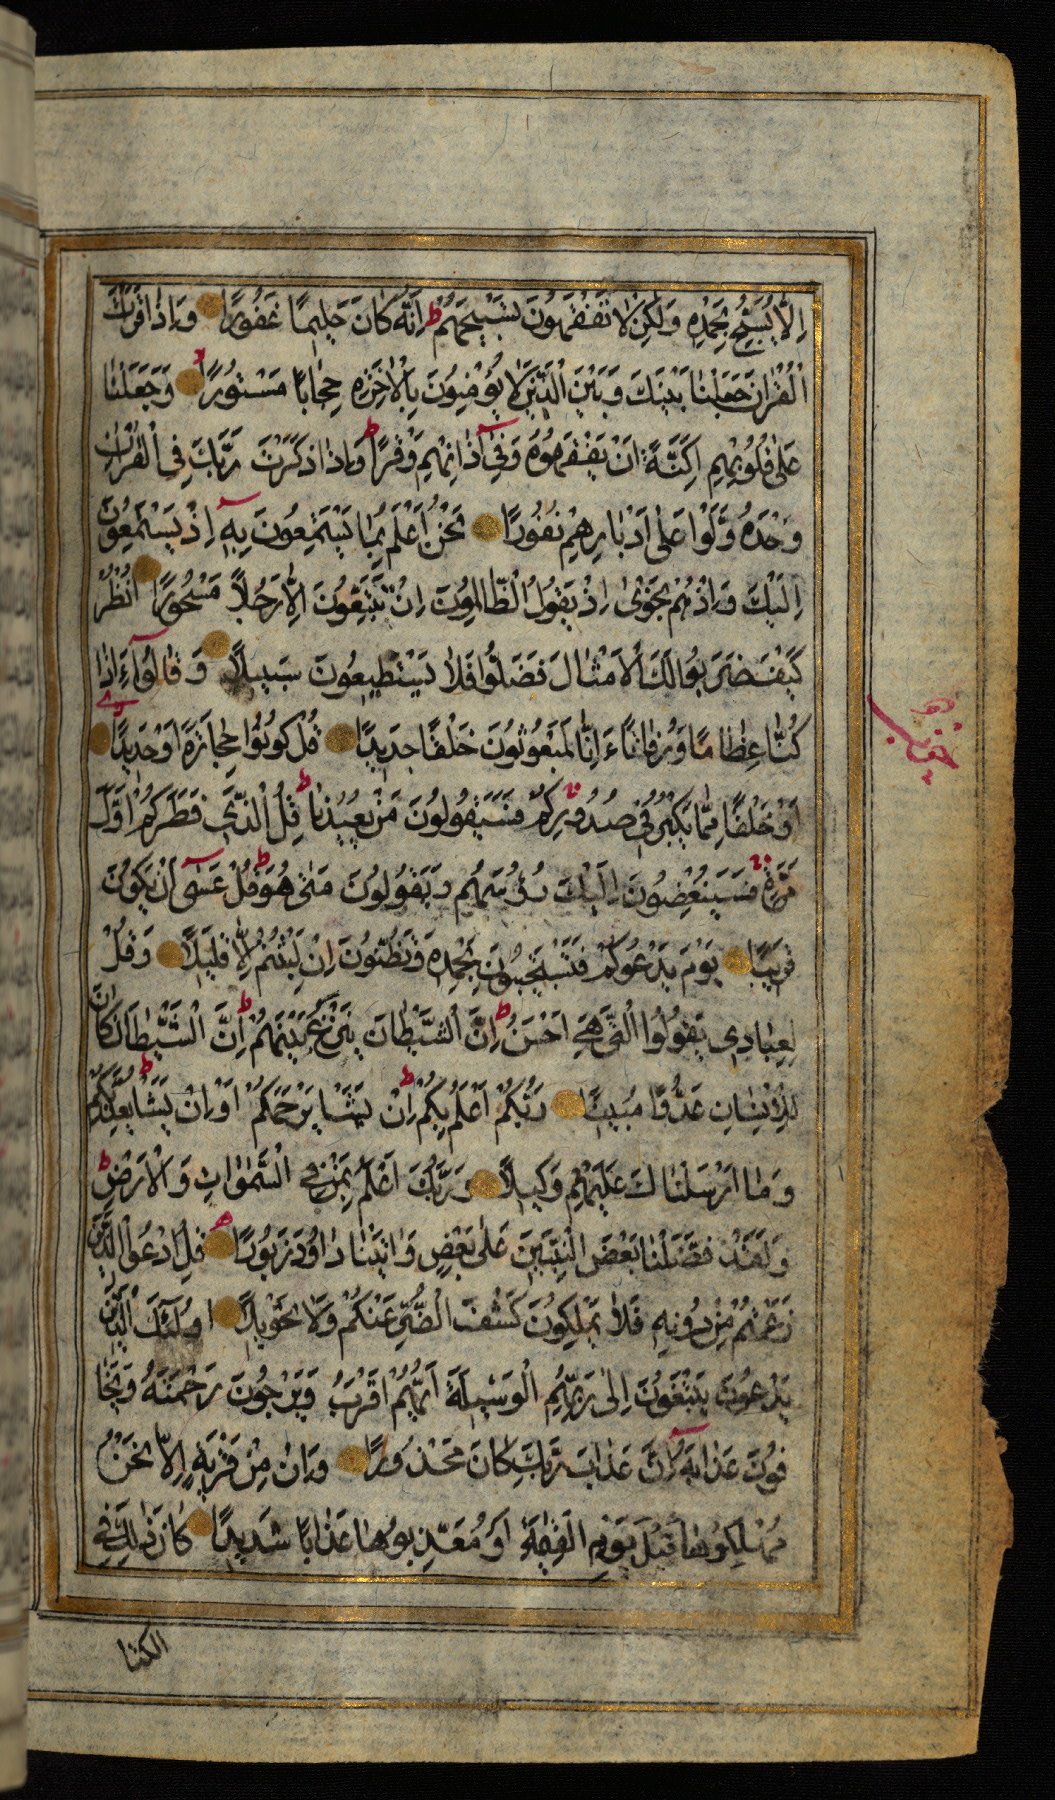 اِلَّا يُسَبِّحُ بِحَمْدِهِ وَلٰكِنْ لَا تَفْقَهُونَ تَسْبِيحَهُمْ ط اِنَّهُ كَانَ حَلِيمًا غَفُورًا وَاِذَا قَرَاْتَ
الْقُرْاٰنَ جَعَلْنَا بَيْنَكَ وَبَيْنَ الَّذِينَ لَا يُؤْمِنُونَ بِالْاٰخِرَةِ حِجَابًا مَسْتُورًا لا وَجَعَلْنَا
عَلٰى قُلُوبِهِمْ اَكِنَّةً اَنْ يَفْقَهُوهُ وَفِي اٰذَانِهِمْ وَقْرًا ط وَاِذَا ذَكَرْتَ رَبَّكَ فِي الْقُرْاٰنِ
وَحْدَهُ وَلَّوْا عَلٰى اَدْبَارِهِمْ نُفُورًا نَحْنُ اَعْلَمُ بِمَا يَسْتَمِعُونَ بِهِ اِذْ يَسْتَمِعُونَ
اِلَيْكَ وَاِذْ هُمْ نَجْوٰى اِذْ يَقُولُ الظَّالِمُونَ اِنْ تَتَّبِعُونَ اِلَّا رَجُلًا مَسْحُورًا اُنْظُرْ
كَيْفَ ضَرَبُوا لَكَ الْاَمْثَالَ فَضَلُّوا فَلَا يَسْتَطِيعُونَ سَبِيلًا وَقَالُوا ءَاِذَا
كُنَّا عِظَامًا وَرُفَاتًا ءَاِنَّا لَمَبْعُوثُونَ خَلْقًا جَدِيدًا قُلْ كُونُوا حِجَارَةً اَوْ حَدِيدًا
اَوْ خَلْقًا مِمَّا يَكْبُرُ فِي صُدُورِكُمْ فَسَيَقُولُونَ مَنْ يُعِيدُنَا ط قُلِ الَّذِي فَطَرَكُمْ اَوَّلَ
مَرَّةٍ فَسَيُنْغِضُونَ اِلَيْكَ رُؤُسَهُمْ وَيَقُولُونَ مَتٰى هُوَ ط قُلْ عَسٰى اَنْ يَكُونَ
قَرِيبًا يَوْمَ يَدْعُوكُمْ فَتَسْتَجِيبُونَ بِحَمْدِهِ وَتَظُنُّونَ اِنْ لَبِثْتُمْ اِلَّا قَلِيلًا وَقُلْ
لِعِبَادِي يَقُولُوا الَّتِي هِيَ اَحْسَنُ ط اِنَّ الشَّيْطَانَ يَنْزَغُ بَيْنَهُمْ ط اِنَّ الشَّيْطَانَ كَانَ
لِلْاِنْسَانِ عَدُوًّا مُبِينًا رَبُّكُمْ اَعْلَمُ بِكُمْ ط اِنْ يَشَاْ يَرْحَمْكُمْ اَوْ اِنْ يَشَاْ يُعَذِّبْكُمْ ط
وَمَا اَرْسَلْنَاكَ عَلَيْهِمْ وَكِيلًا وَرَبُّكَ اَعْلَمُ بِمَنْ فِي السَّمٰوَاتِ وَالْاَرْضِ ط
وَلَقَدْ فَضَّلْنَا بَعْضَ النَّبِيِّينَ عَلٰى بَعْضٍ وَاٰتَيْنَا دَاوُدَ زَبُورًا قُلِ ادْعُوا الَّذِينَ
زَعَمْتُمْ مِنْ دُونِهِ فَلَا يَمْلِكُونَ كَشْفَ الضُّرِّ عَنْكُمْ وَلَا تَحْوِيلًا اُولٰئِكَ الَّذِينَ
يَدْعُونَ يَبْتَغُونَ اِلٰى رَبِّهِمُ الْوَسِيلَةَ اَيُّهُمْ اَقْرَبُ وَيَرْجُونَ رَحْمَتَهُ وَيَخَا
فُونَ عَذَابَهُ اِنَّ عَذَابَ رَبِّكَ كَانَ مَحْذُورًا وَاِنْ مِنْ قَرْيَةٍ اِلَّا نَحْنُ
مُهْلِكُوهَا قَبْلَ يَوْمِ الْقِيٰمَةِ اَوْ مُعَذِّبُوهَا عَذَابًا شَدِيدًا كَانَ ذٰلِكَ فِي
الكتا